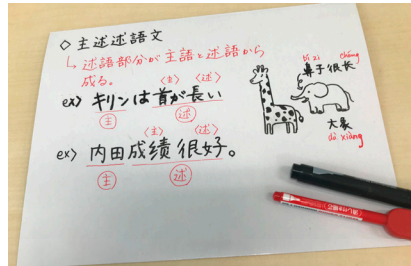 ◇ 主述述語文
↳ 述語部分が主語と述語から
成る。
〈主〉 〈述〉
ex〉 キリンは首が長い
主 述
〈主〉 〈述〉
ex〉 内田成绩很好。
主 述
bí zi cháng
鼻子很长
大象
dà xiàng